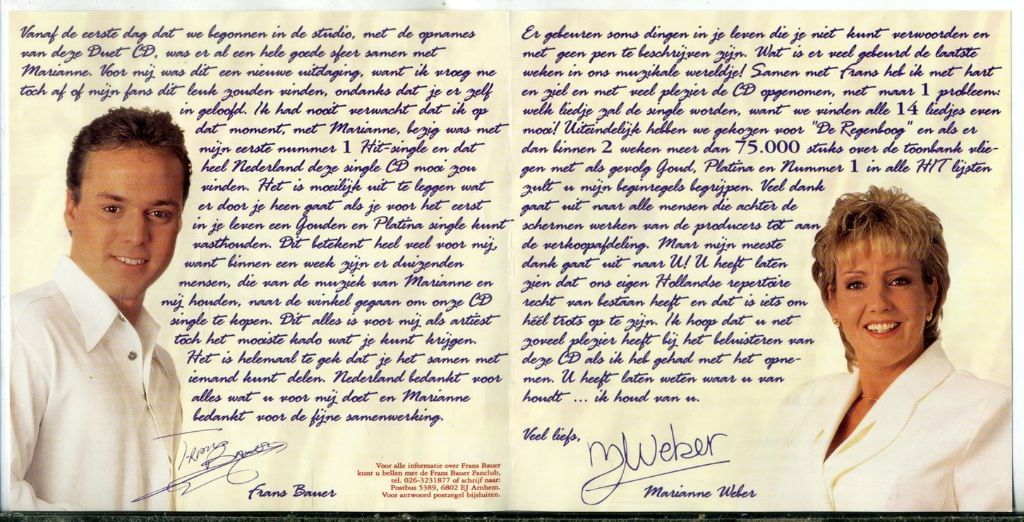 Vanaf de eerste dag dat we begonnen in de studio, met de opnames
van deze Duet CD, was er al een hele goede sfeer samen met
Marianne. Voor mij was dit een nieuwe uitdaging, want ik vroeg me
toch af of mijn fans dit leuk zouden vinden, ondanks dat je er zelf
in geloofd. Ik had nooit verwacht dat ik op
dat moment, met Marianne, bezig was met
mijn eerste nummer 1 Hit-single en dat
heel Nederland deze single CD mooi zou
vinden. Het is moeilijk uit te leggen wat
er door je heen gaat als je voor het eerst
in je leven een Gouden en Platina single kunt
vasthouden. Dit betekent heel veel voor mij,
want binnen een week zijn er duizenden
mensen, die van de muziek van Marianne en
mij houden, naar de winkel gegaan om onze CD
single te kopen. Dit alles is voor mij als artiest
toch het mooiste kado wat je kunt krijgen.
Het is helemaal te gek dat je het samen met
iemand kunt delen. Nederland bedankt voor
alles wat u voor mij doet en Marianne
bedankt voor de fijne samenwerking.
Frans Bauer
Frans Bauer
Voor alle informatie over Frans Bauer
kunt u bellen met de Frans Bauer Fanclub,
tel. 026-3231877 of schrijf naar:
Postbus 5389, 6802 EJ Arnhem.
Voor antwoord postzegel bijsluiten.
Er gebeuren soms dingen in je leven die je niet kunt verwoorden en
met geen pen te beschrijven zijn. Wat is er veel gebeurd de laatste
weken in ons muzikale wereldje! Samen met Frans heb ik met hart
en ziel en met veel plezier de CD opgenomen, met maar 1 probleem:
welk liedje zal de single worden, want we vinden alle 14 liedjes even
mooi! Uiteindelijk hebben we gekozen voor "De Regenboog" en als er
dan binnen 2 weken meer dan 75.000 stuks over de toonbank vlie-
gen met als gevolg Goud, Platina en Nummer 1 in alle HIT lijsten
zult u mijn beginregels begrijpen. Veel dank
gaat uit naar alle mensen die achter de
schermen werken van de producers tot aan
de verkoopafdeling. Maar mijn meeste
dank gaat uit naar U! U heeft laten
zien dat ons eigen Hollandse repertoire
recht van bestaan heeft en dat is iets om
héél trots op te zijn. Ik hoop dat u net
zoveel plezier heeft bij het beluisteren van
deze CD als ik heb gehad met het opne-
men. U heeft laten weten waar u van
houdt ... ik houd van u.
Veel liefs,
M Weber
Marianne Weber